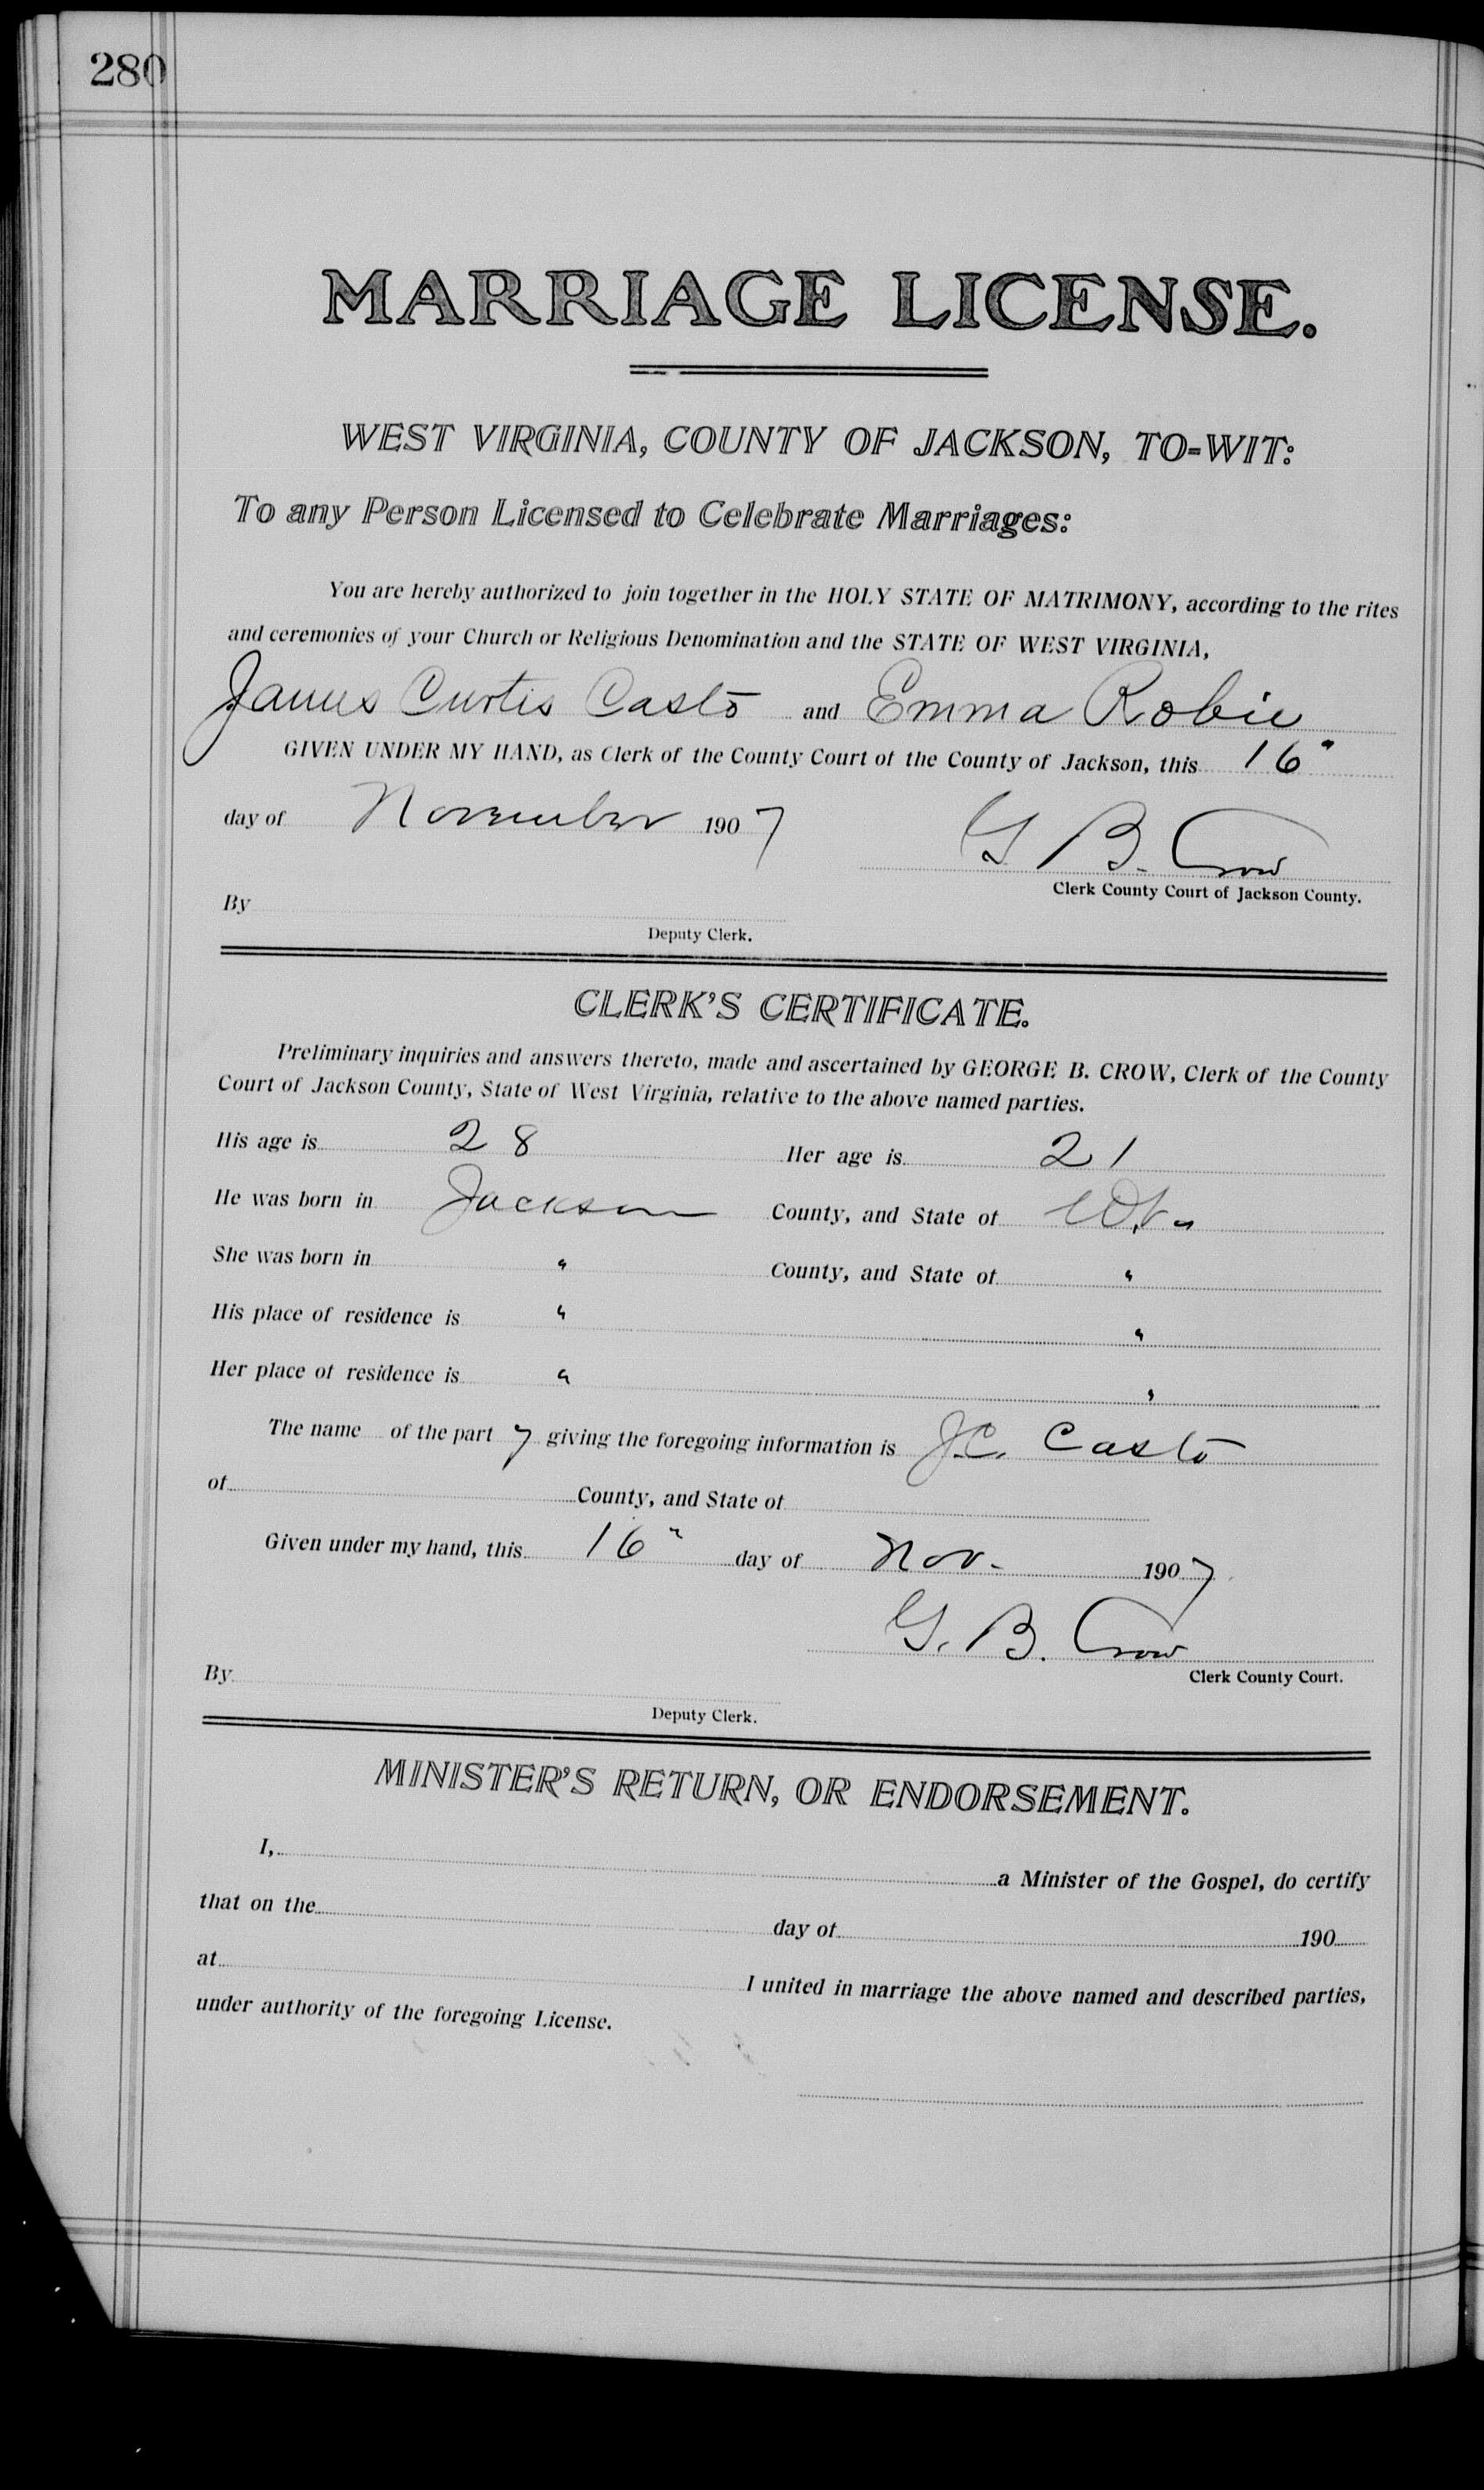 280
MARRIAGE LICENSE.
WEST VIRGINIA, COUNTY OF JACKSON, TO-WIT:
To any Person Licensed to Celebrate Marriages:
You are hereby authorized to join together in the HOLY STATE OF MATRIMONY, according to the rites
and ceremonies of your Church or Religious Denomination and the STATE OF WEST VIRGINIA,
James Curtis Casto and Emma Robie
GIVEN UNDER MY HAND, as Clerk of the County Court of the County of Jackson, this 16"
day of November 1907 G B. Crow
Clerk County Court of Jackson County.
By
Deputy Clerk.
CLERK'S CERTIFICATE.
Preliminary inquiries and answers thereto, made and ascertained by GEORGE B. CROW, Clerk of the County
Court of Jackson County, State of West Virginia, relative to the above named parties.
His age is 28 Her age is 21
He was born in Jackson County, and State of W.Va
She was born in " County, and State of "
His place of residence is " "
Her place of residence is " "
The name of the part y giving the foregoing information is J.C. Casto
of County, and State of
Given under my hand, this 16" day of Nov. 1907
G. B. Crow
Clerk County Court.
By
Deputy Clerk.
MINISTER'S RETURN, OR ENDORSEMENT.
I, a Minister of the Gospel, do certify
that on the day of 190
at I united in marriage the above named and described parties,
under authority of the foregoing License.